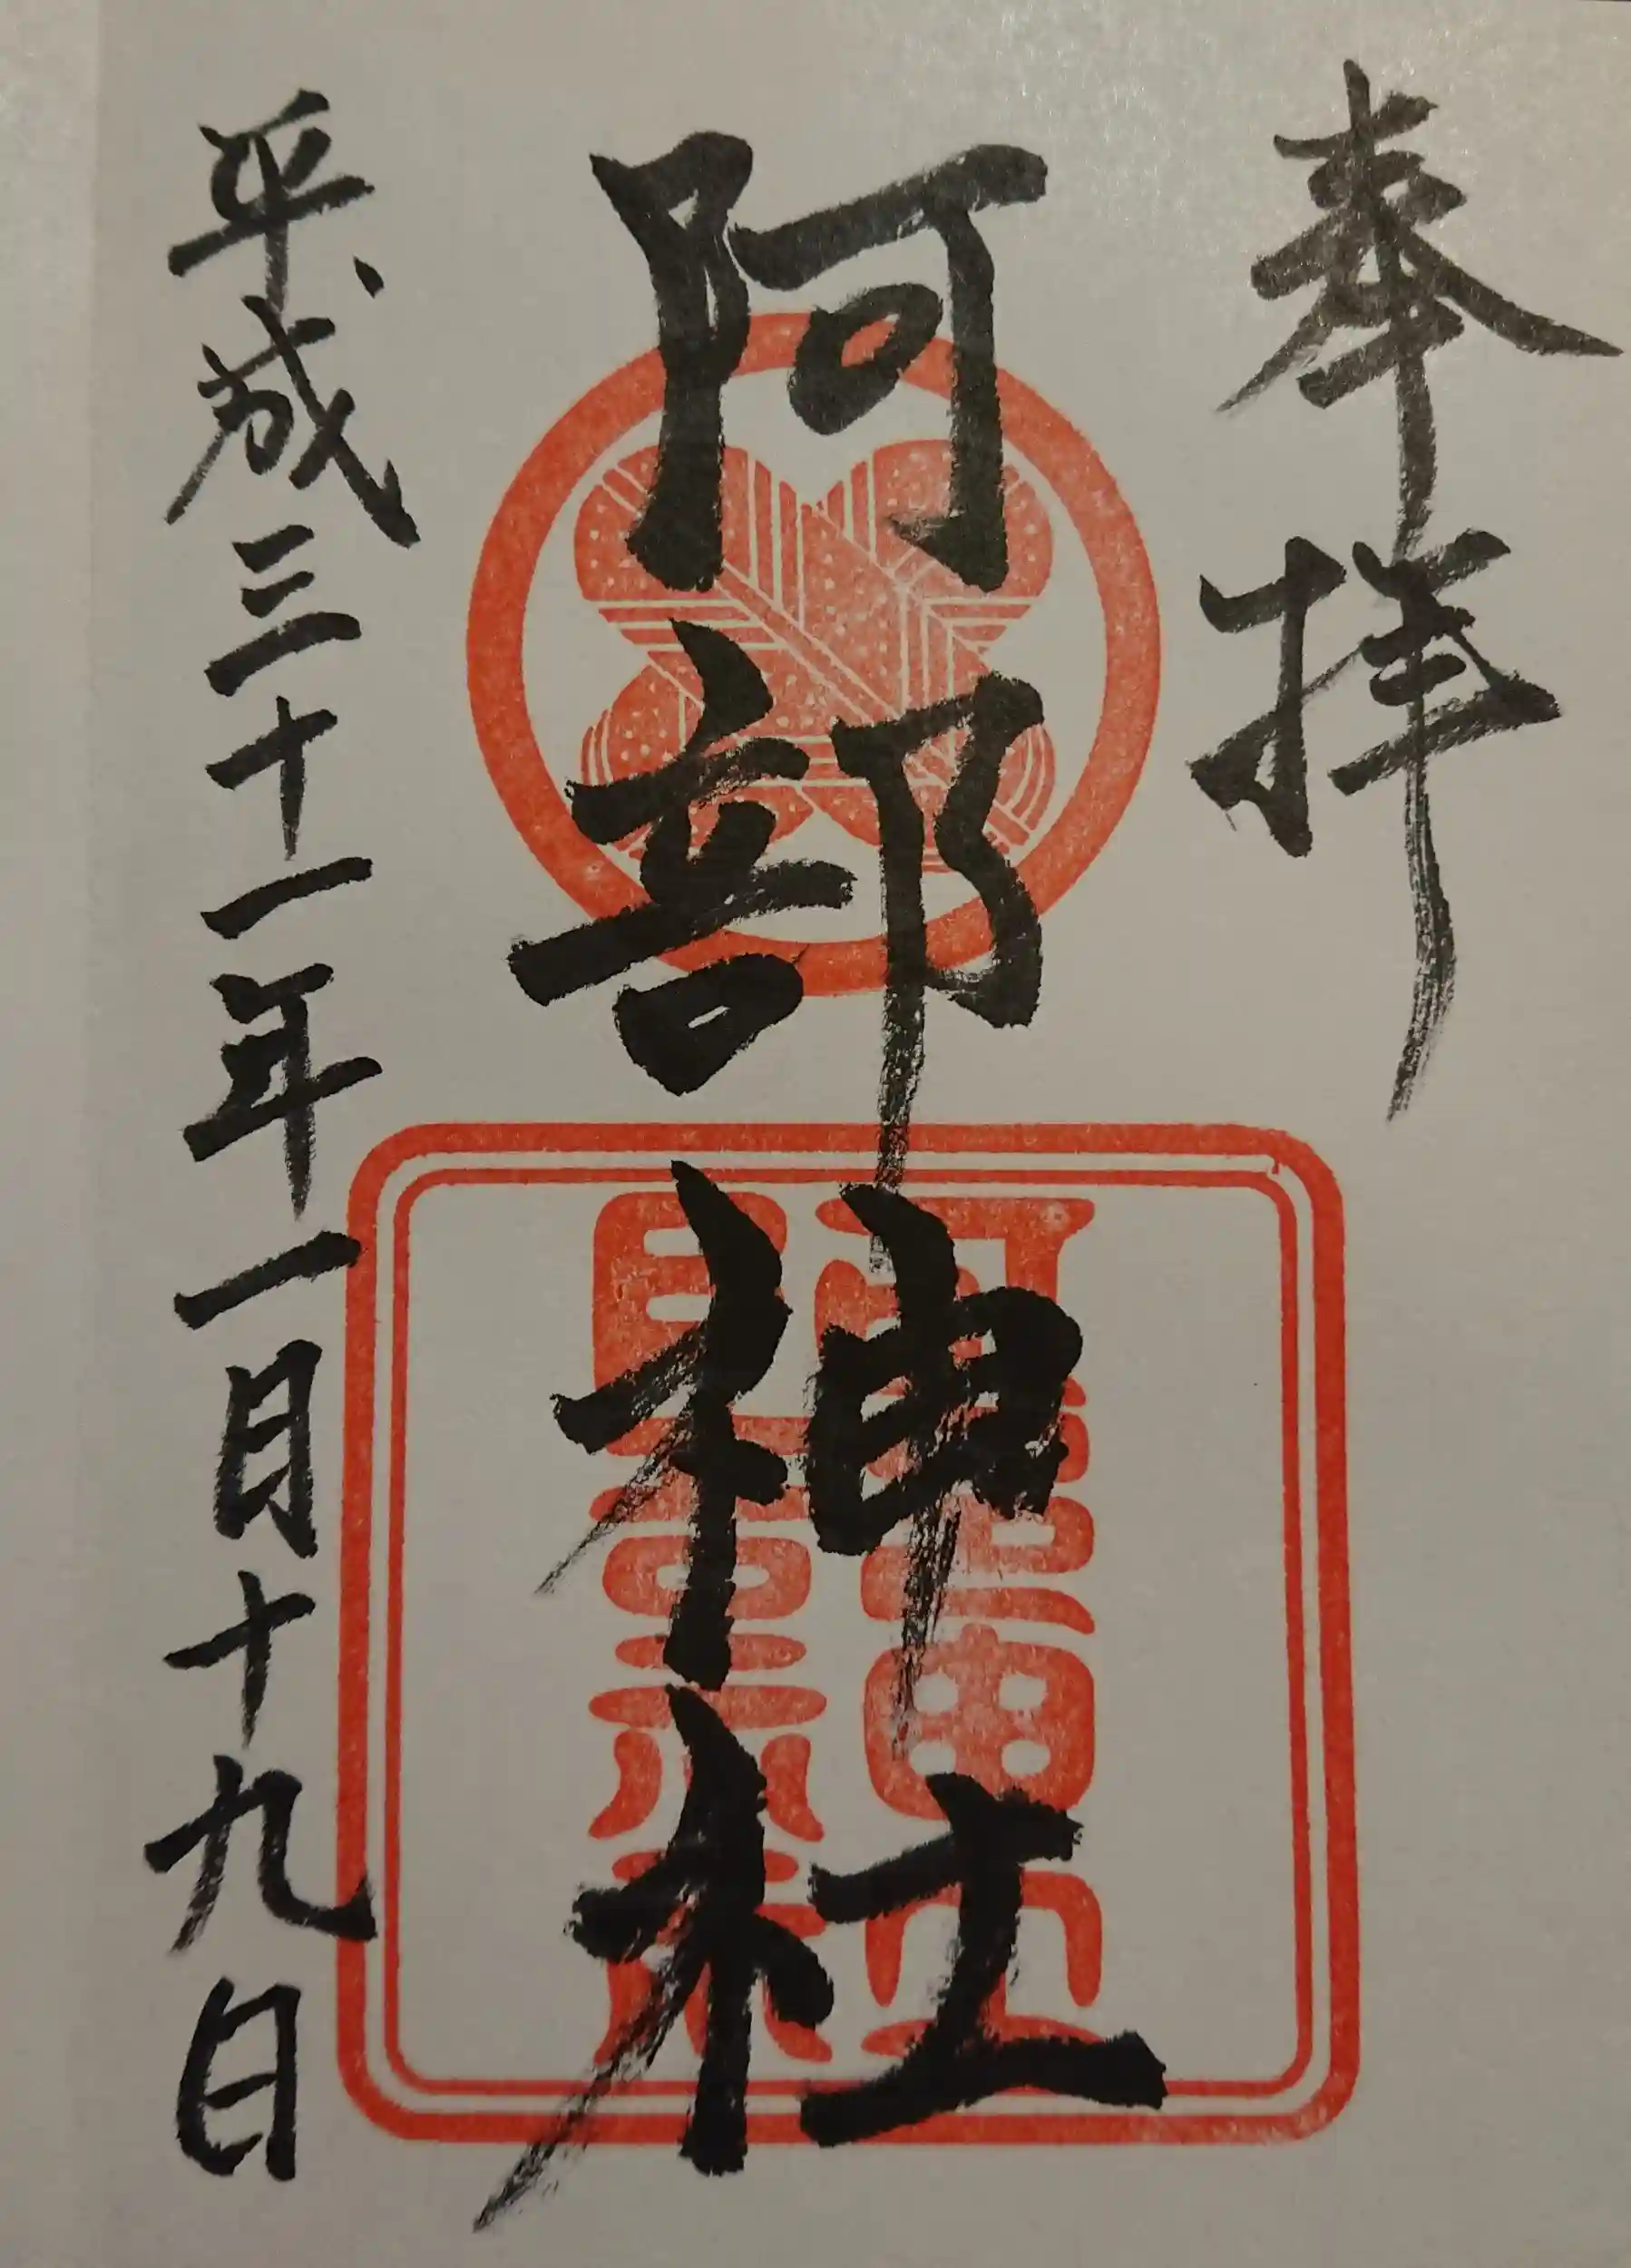 奉拝
阿部神社
平成三十一年一月十九日